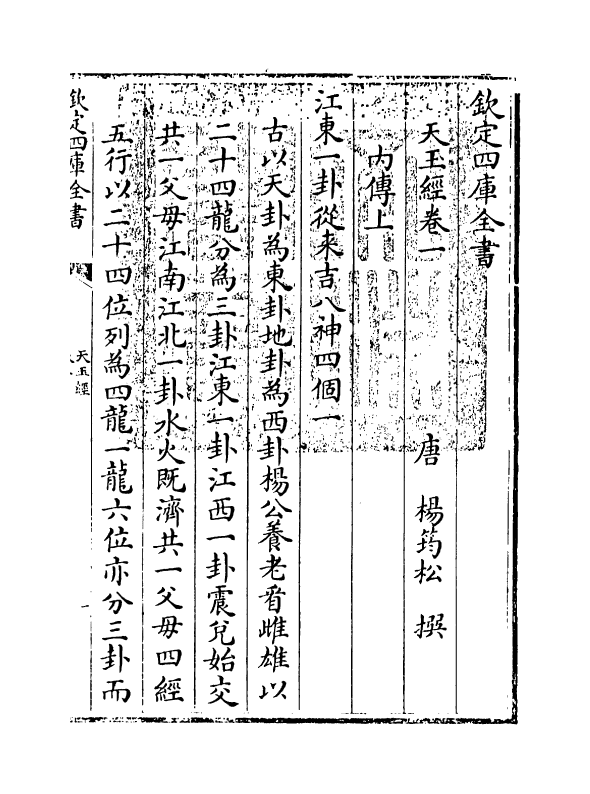 欽定四庫全書
天玉經卷一　唐　楊筠松　撰
內傳上
江東一卦從来吉八神四個一
古以天卦為東卦地卦為西卦楊公養老㸔雌雄以
二十四龍分為三卦江東一卦江西一卦震兌始交
共一父毋江南江北一卦水火既濟共一父毋四經
五行以二十四位列為四龍一龍六位亦分三卦而
欽定四庫全書
天玉經